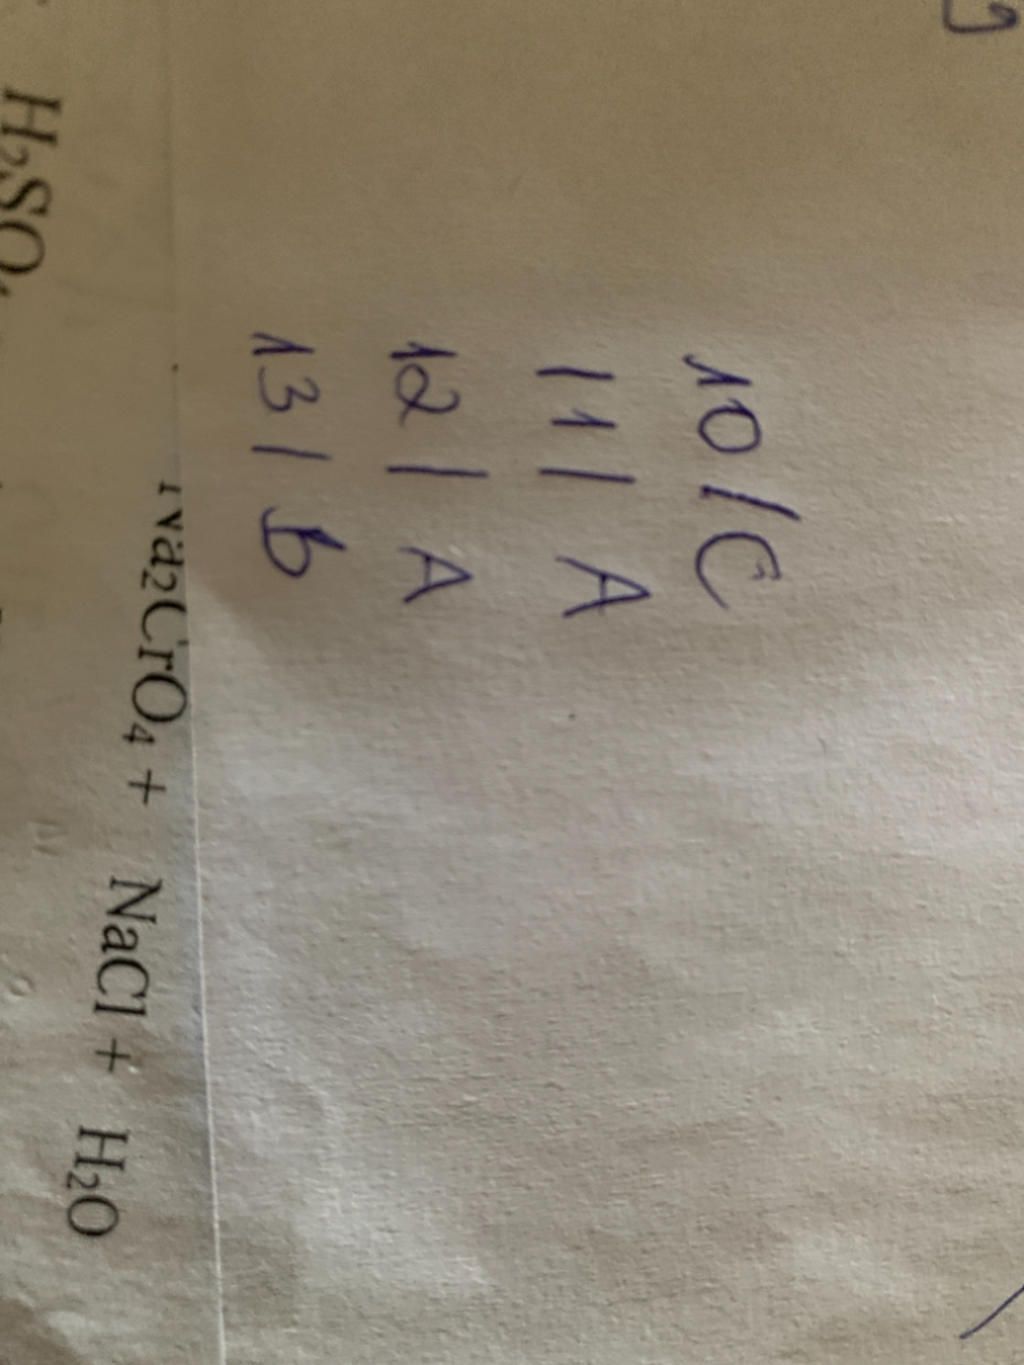 10/C
11/A
12/A
13/b
Na₂CrO₄ + NaCl + H₂O
H₂SO₄